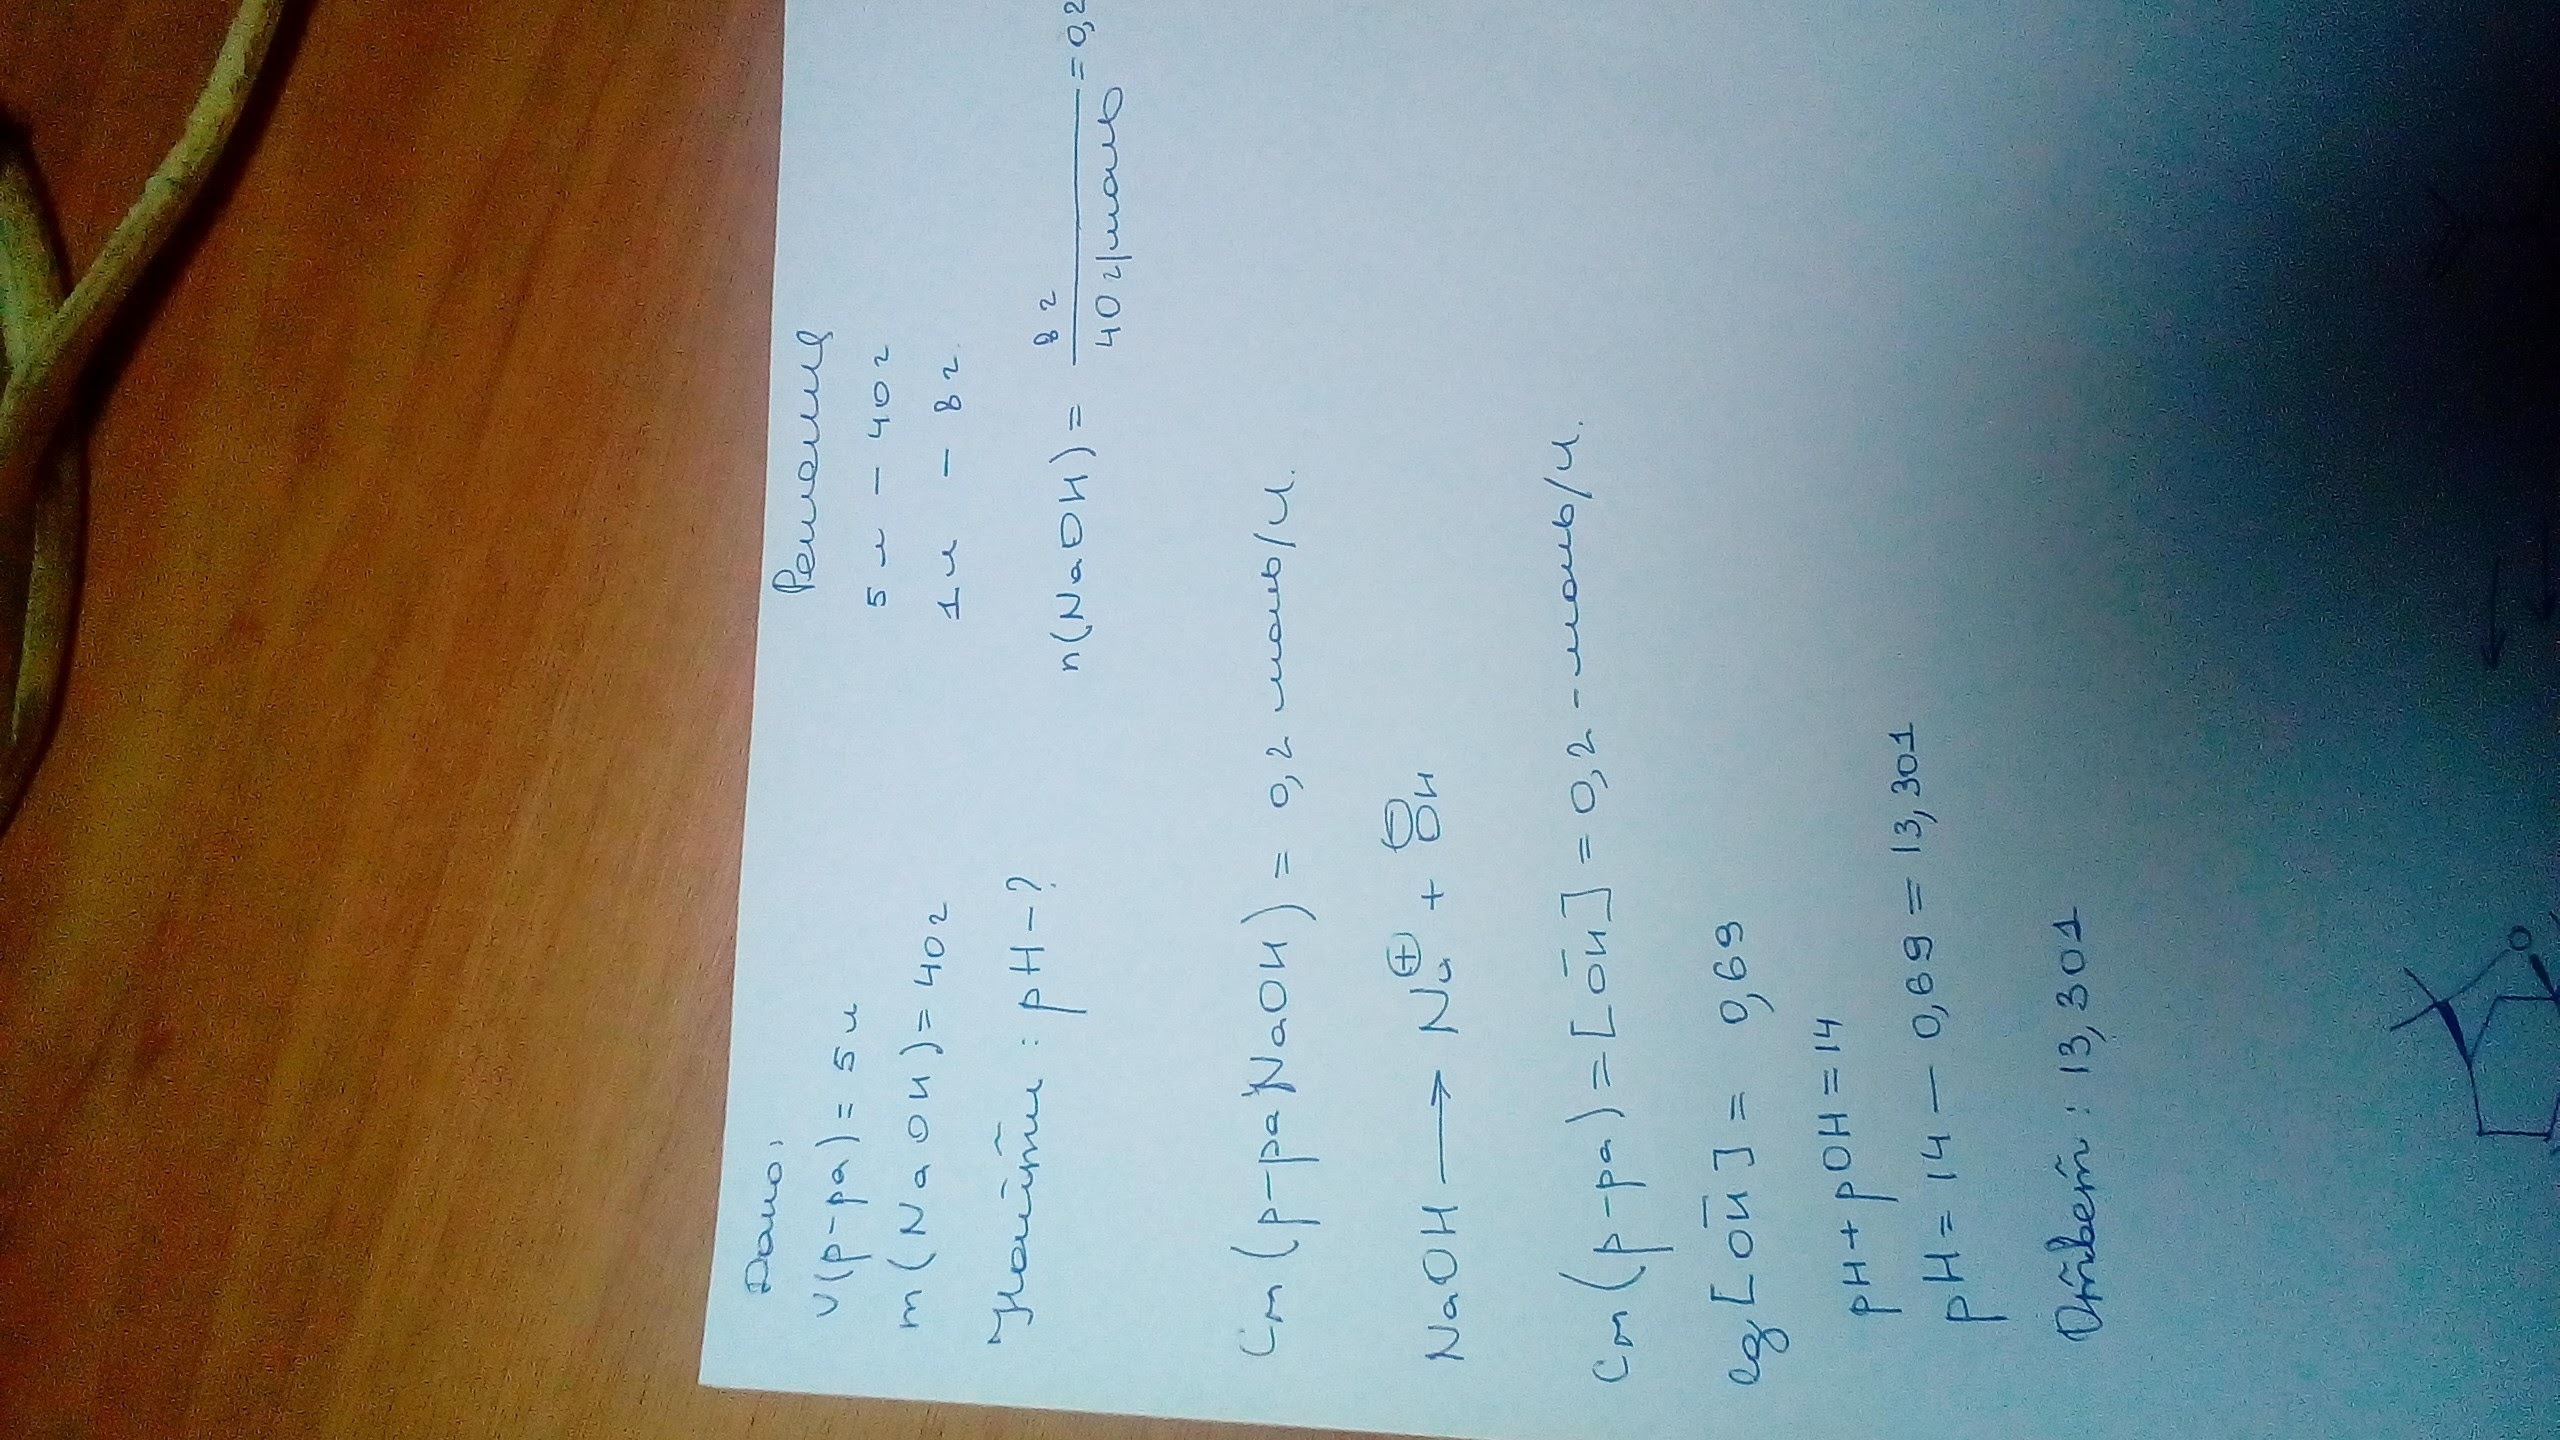 Дано:
V(р-ра) = 5 л
m(NaOH) = 40 г
Найти: pH - ?
Решение
5 л - 40 г
1 л - 8 г.
n(NaOH) = 8 г / 40 г/моль = 0,2
Cm(р-ра NaOH) = 0,2 моль/л.
NaOH → Na⊕ + ⊖OH
Cm(р-ра) = [OH̄] = 0,2 - моль/л.
lg[OH̄] = 0,69
pH + pOH = 14
pH = 14 - 0,69 = 13,301
Ответ: 13,301
O